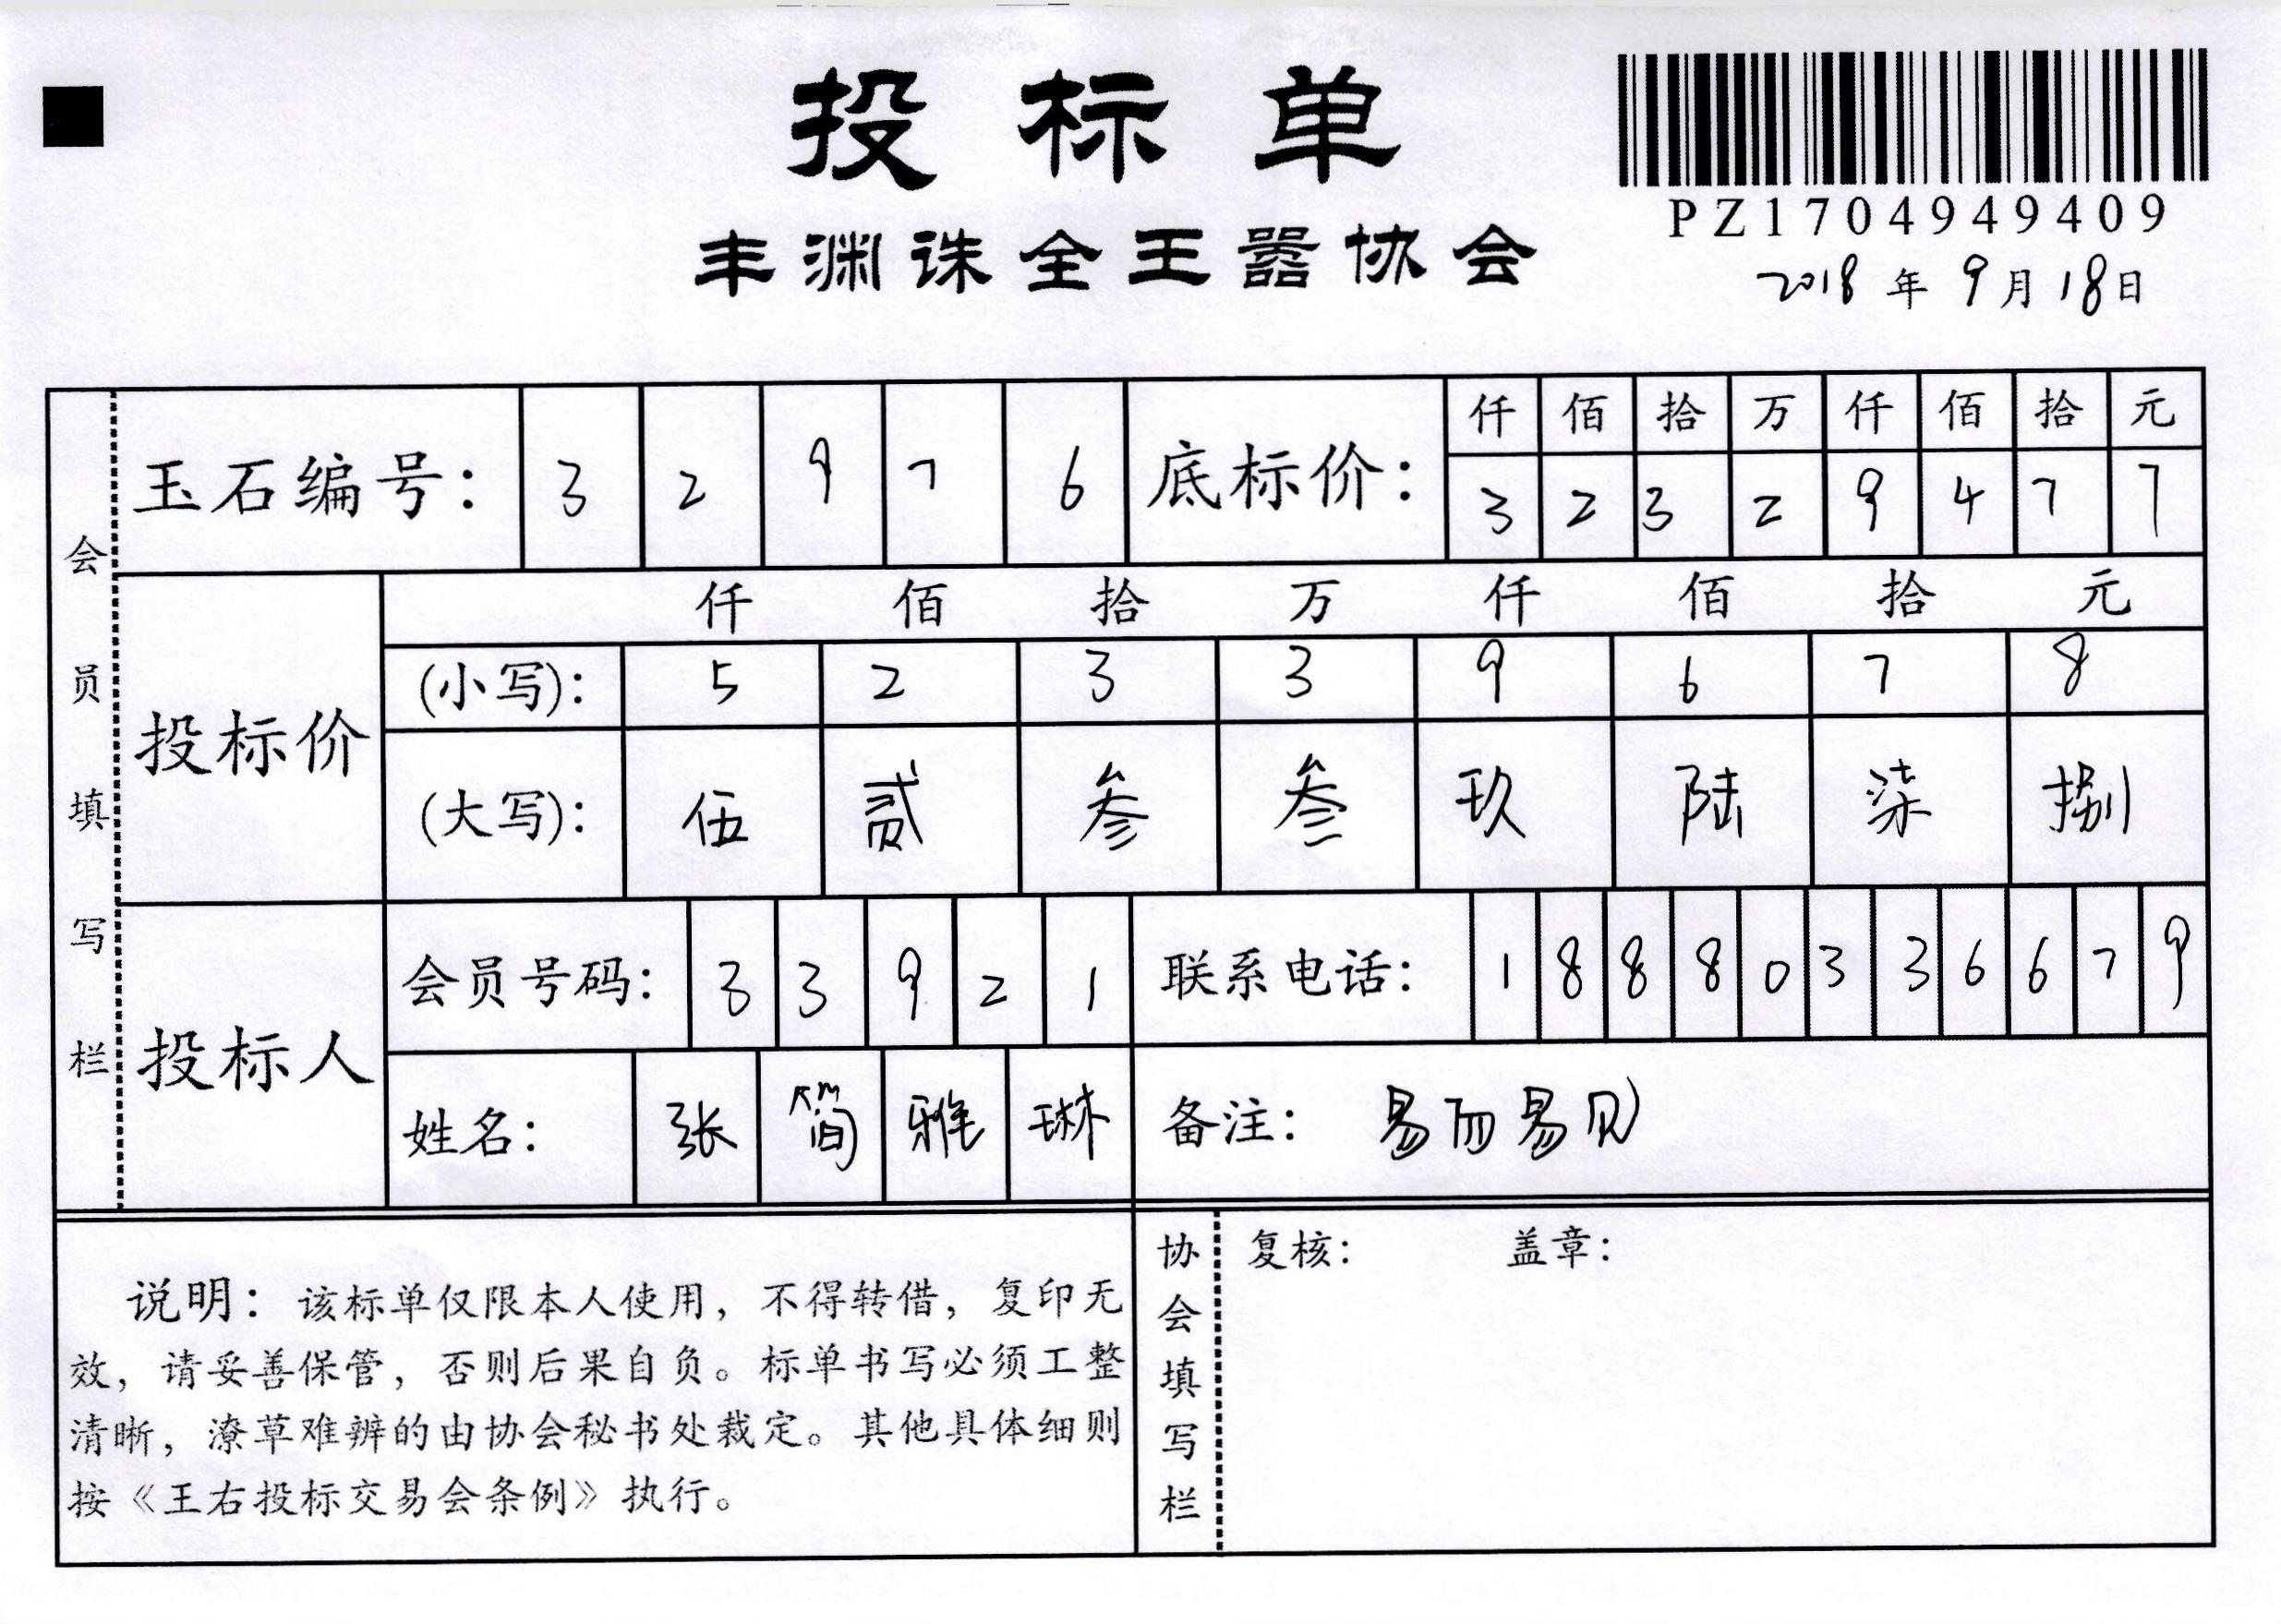 投标单
PZ1704949409
丰渊诛全王嚣协会
2018年9月18日
会员填写栏
玉石编号: 3 2 9 7 6
底标价: 仟 佰 拾 万 仟 佰 拾 元
3 2 3 2 9 4 7 7
投标价
仟 佰 拾 万 仟 佰 拾 元
(小写): 5 2 3 3 9 6 7 8
(大写): 伍 贰 叁 叁 玖 陆 柒 捌
投标人
会员号码: 3 3 9 2 1
联系电话: 1 8 8 8 0 3 3 6 6 7 9
姓名: 张 简 雅 琳
备注: 易而易见
说明: 该标单仅限本人使用, 不得转借, 复印无
效, 请妥善保管, 否则后果自负。标单书写必须工整
清晰, 潦草难辨的由协会秘书处裁定。其他具体细则
按《王右投标交易会条例》执行。
协会填写栏
复核: 盖章: